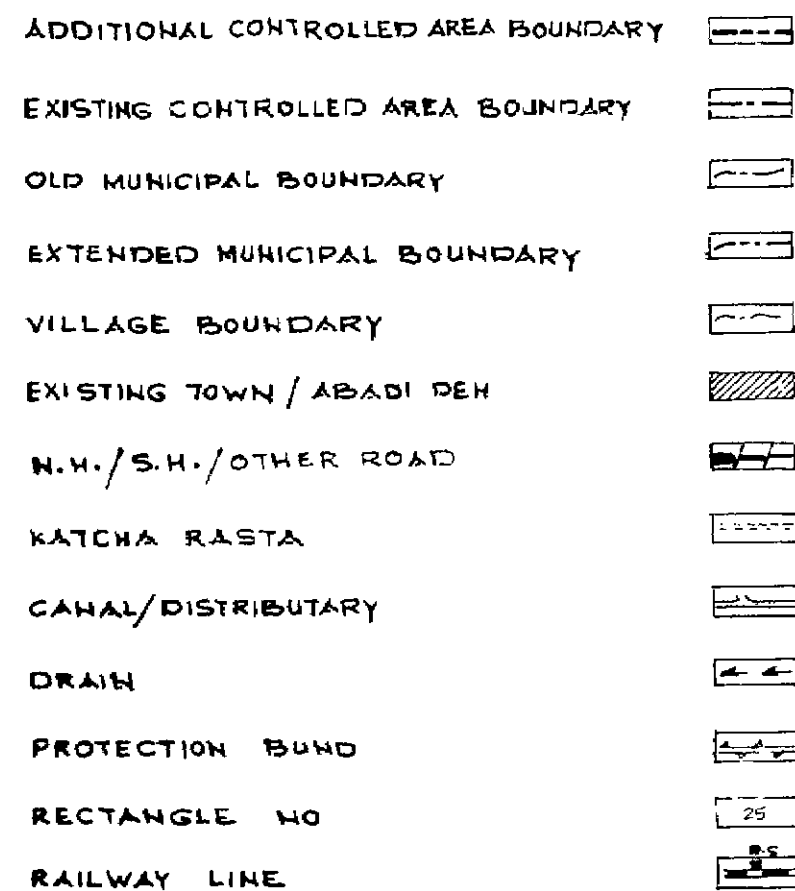 ADDITIONAL CONTROLLED AREA BOUNDARY
EXISTING CONTROLLED AREA BOUNDARY
OLD MUNICIPAL BOUNDARY
EXTENDED MUNICIPAL BOUNDARY
VILLAGE BOUNDARY
EXISTING TOWN / ABADI DEH
N.H./S.H./OTHER ROAD
KATCHA RASTA
CANAL/DISTRIBUTARY
DRAIN
PROTECTION BUND
RECTANGLE NO 25
R.S
RAILWAY LINE